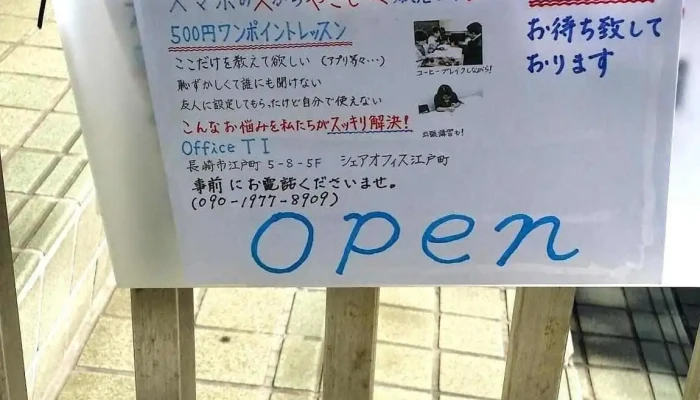 500円ワンポイントレッスン
ここだけを教えて欲しい（アプリ等々…）
恥ずかしくて誰にも聞けない
友人に設定してもらったけど自分で使えない
こんなお悩みを私たちがスッキリ解決！
Office TI
長崎市江戸町5-8-5F シェアオフィス江戸町
事前にお電話くださいませ。
(090-1977-8909)
open
コーヒーブレイクしながら！
出張講習も！
お待ち致して
おります